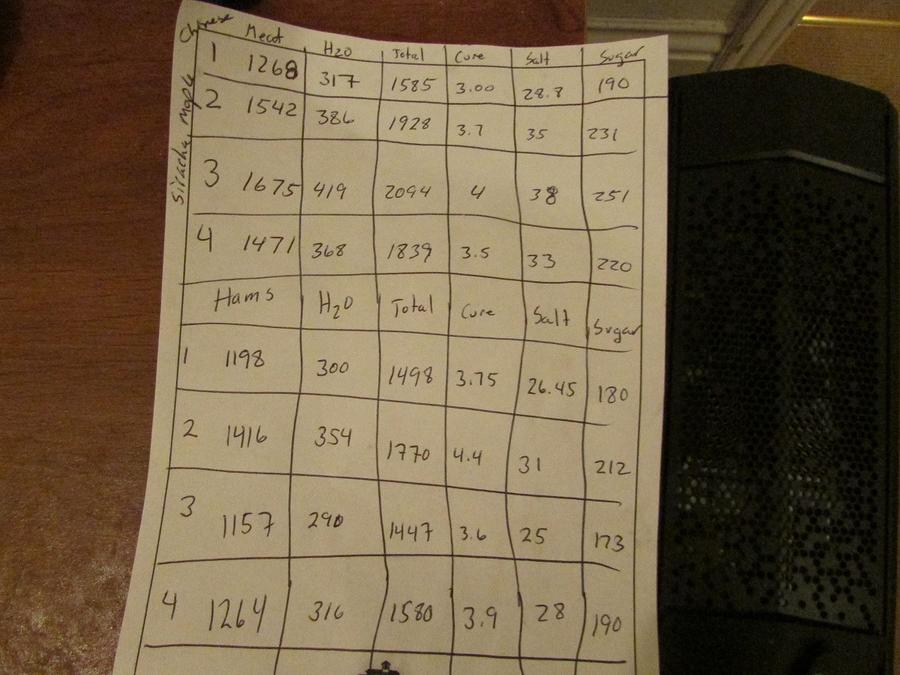 Chinese
Siracha Maple
Meat H2O Total Cure Salt Sugar
1 1268 317 1585 3.00 28.8 190
2 1542 386 1928 3.7 35 231
3 1675 419 2094 4 38 251
4 1471 368 1839 3.5 33 220
Hams H2O Total Cure Salt Sugar
1 1198 300 1498 3.75 26.45 180
2 1416 354 1770 4.4 31 212
3 1157 290 1447 3.6 25 173
4 1264 316 1580 3.9 28 190